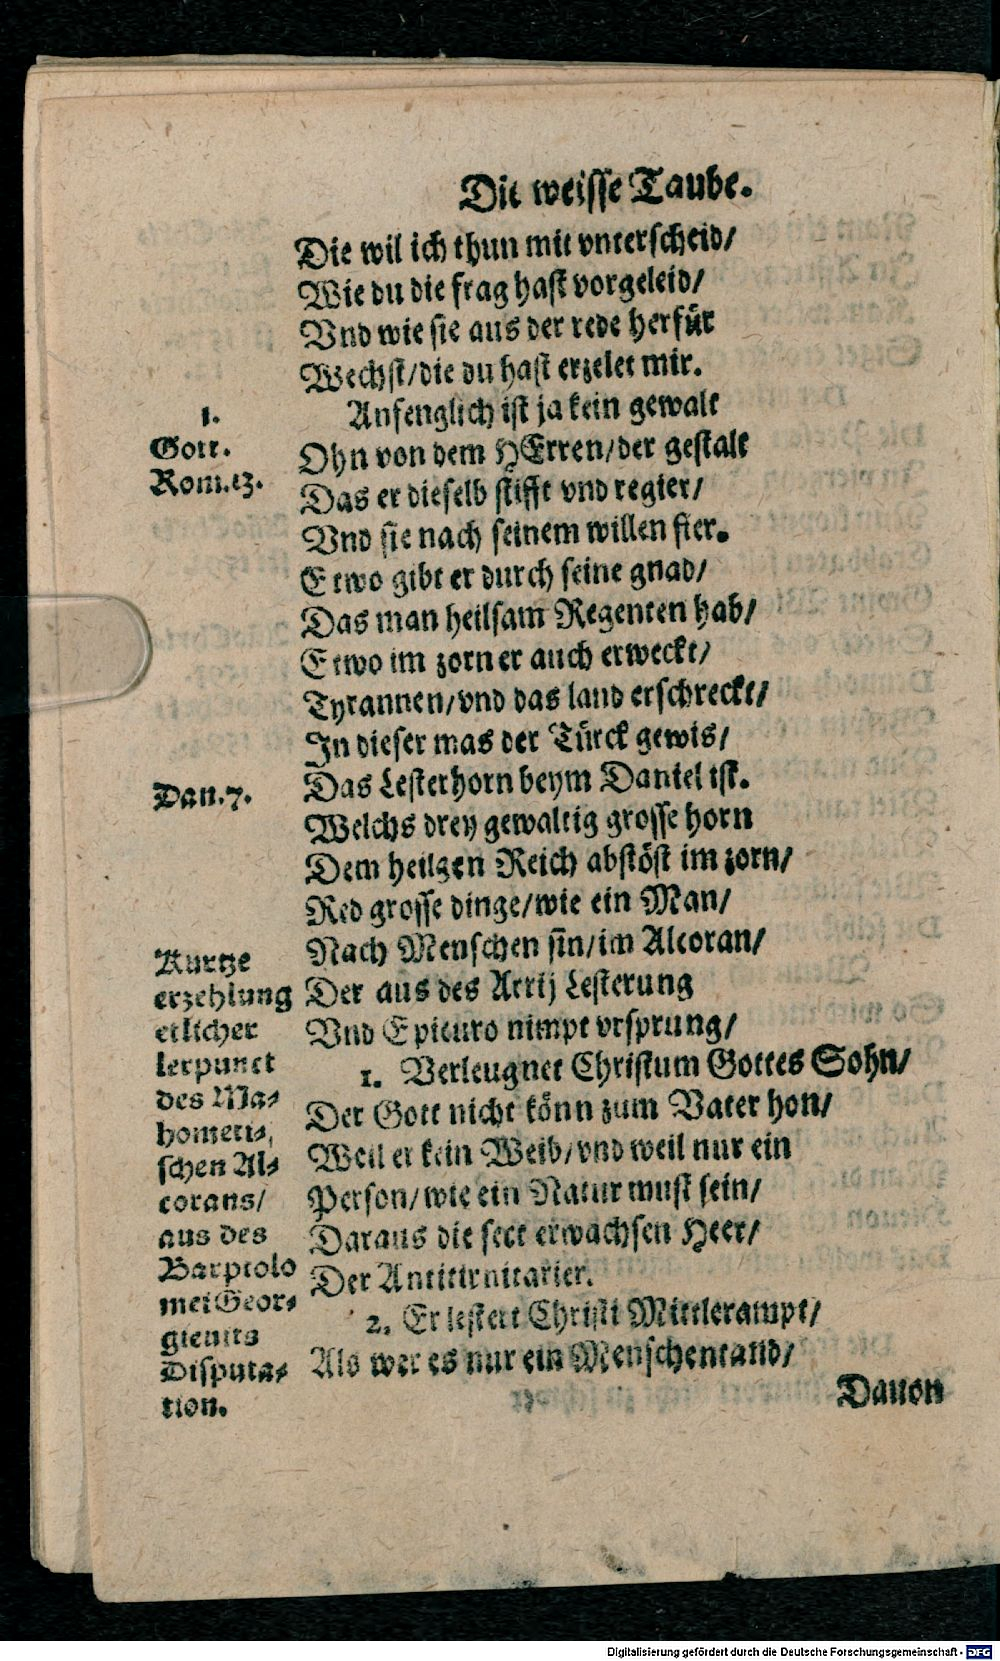 Die weisse Taube.
Die wil ich thun mit vnterscheid/
Wie du die frag hast vorgeleid/
Vnd wie sie aus der rede herfür
Wechst/die du hast erzelet mir.
Anfenglich ist ja kein gewalt
Ohn von dem HErren/der gestalt
Das er dieselb stifft vnd regier/
Vnd sie nach seinem willen fier.
Etwo gibt er durch seine gnad/
Das man heilsam Regenten hab/
Etwo im zorn er auch erweckt/
Tyrannen/vnd das land erschreckt/
In dieser mas der Türck gewis/
Das Lesterhorn beym Daniel ist.
Welchs drey gewaltig grosse horn
Dem heilgen Reich abstöst im zorn/
Red grosse dinge/wie ein Man/
Nach Menschen sin/im Alcoran/
Der aus des Arrij Lesterung
Vnd Epicuro nimpt vrsprung/
1. Verleugnet Christum Gottes Sohn/
Der Gott nicht könn zum Vater hon/
Weil er kein Weib/vnd weil nur ein
Person/wie ein Natur must sein/
Daraus die sect erwachsen Heer/
Der Antitirnitarier.
2. Er lestert Christi Mittlerampt/
Als wer es nur ein Menschentand/
Dauon
1.
Gott.
Rom.13.
Dan.7.
Kurtze
erzehlung
etlicher
lerpunct
des Ma⸗
hometi⸗
schen Al⸗
corans/
aus des
Barptolo
mei Geor⸗
gieuits
Disputa⸗
tion.
Digitalisierung gefördert durch die Deutsche Forschungsgemeinschaft - DFG